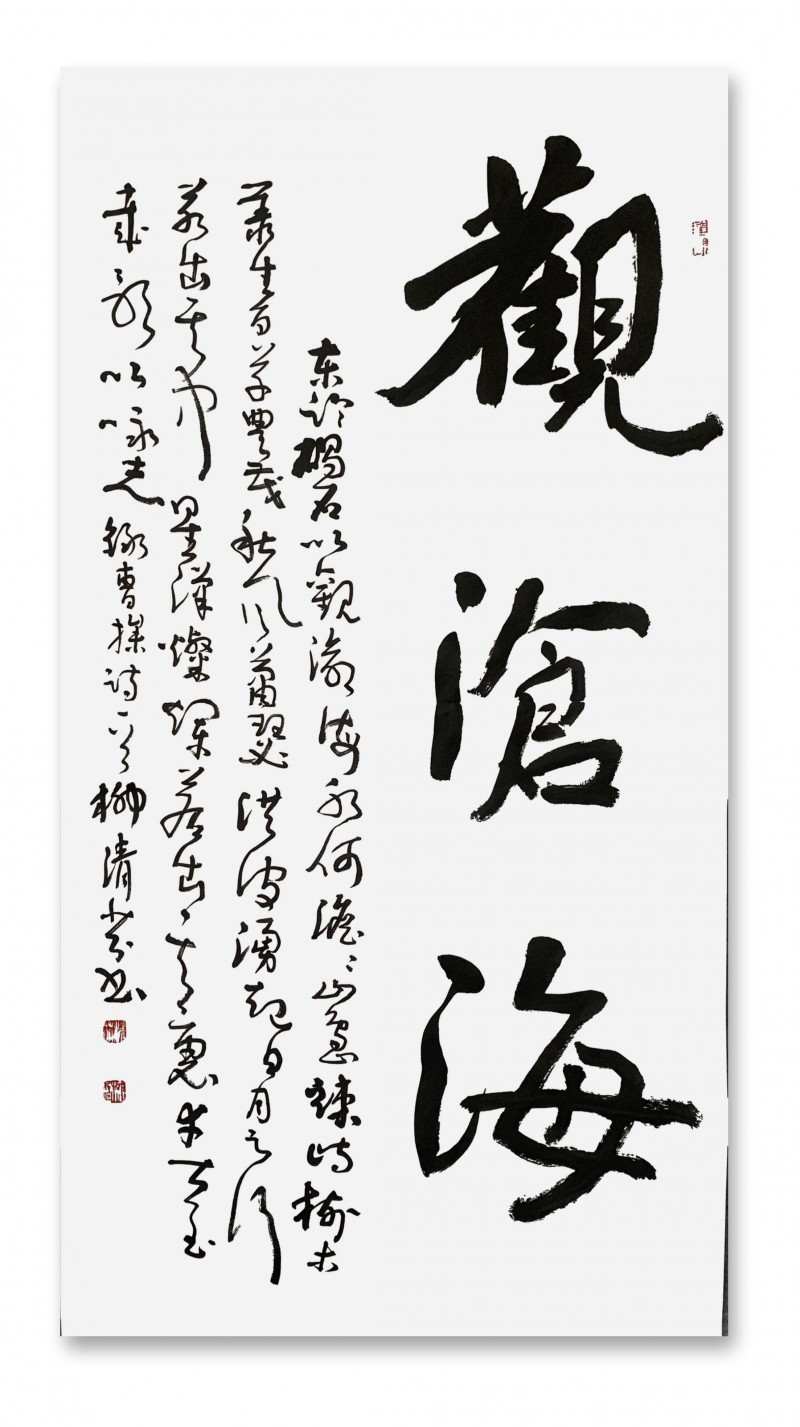 觀滄海
东临碣石以觀滄海水何澹〻山島竦峙樹木
叢生百草豐茂秋風蕭瑟洪波湧起日月之行
若出其中星漢燦爛若出其裏幸甚至
哉歌以咏志錄曹操詩一首柳清芬书